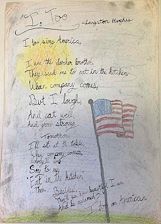 I, Too
- Langston Hughes
I, too, sing America.
I am the darker brother.
They send me to eat in the kitchen
When company comes,
But I laugh,
And eat well,
And grow strong.
Tomorrow,
I'll be at the table
When company comes.
Nobody'll dare
Say to me,
"Eat in the kitchen,"
Then.
Besides,
They'll see how beautiful I am
And be ashamed—
I, too, am America.